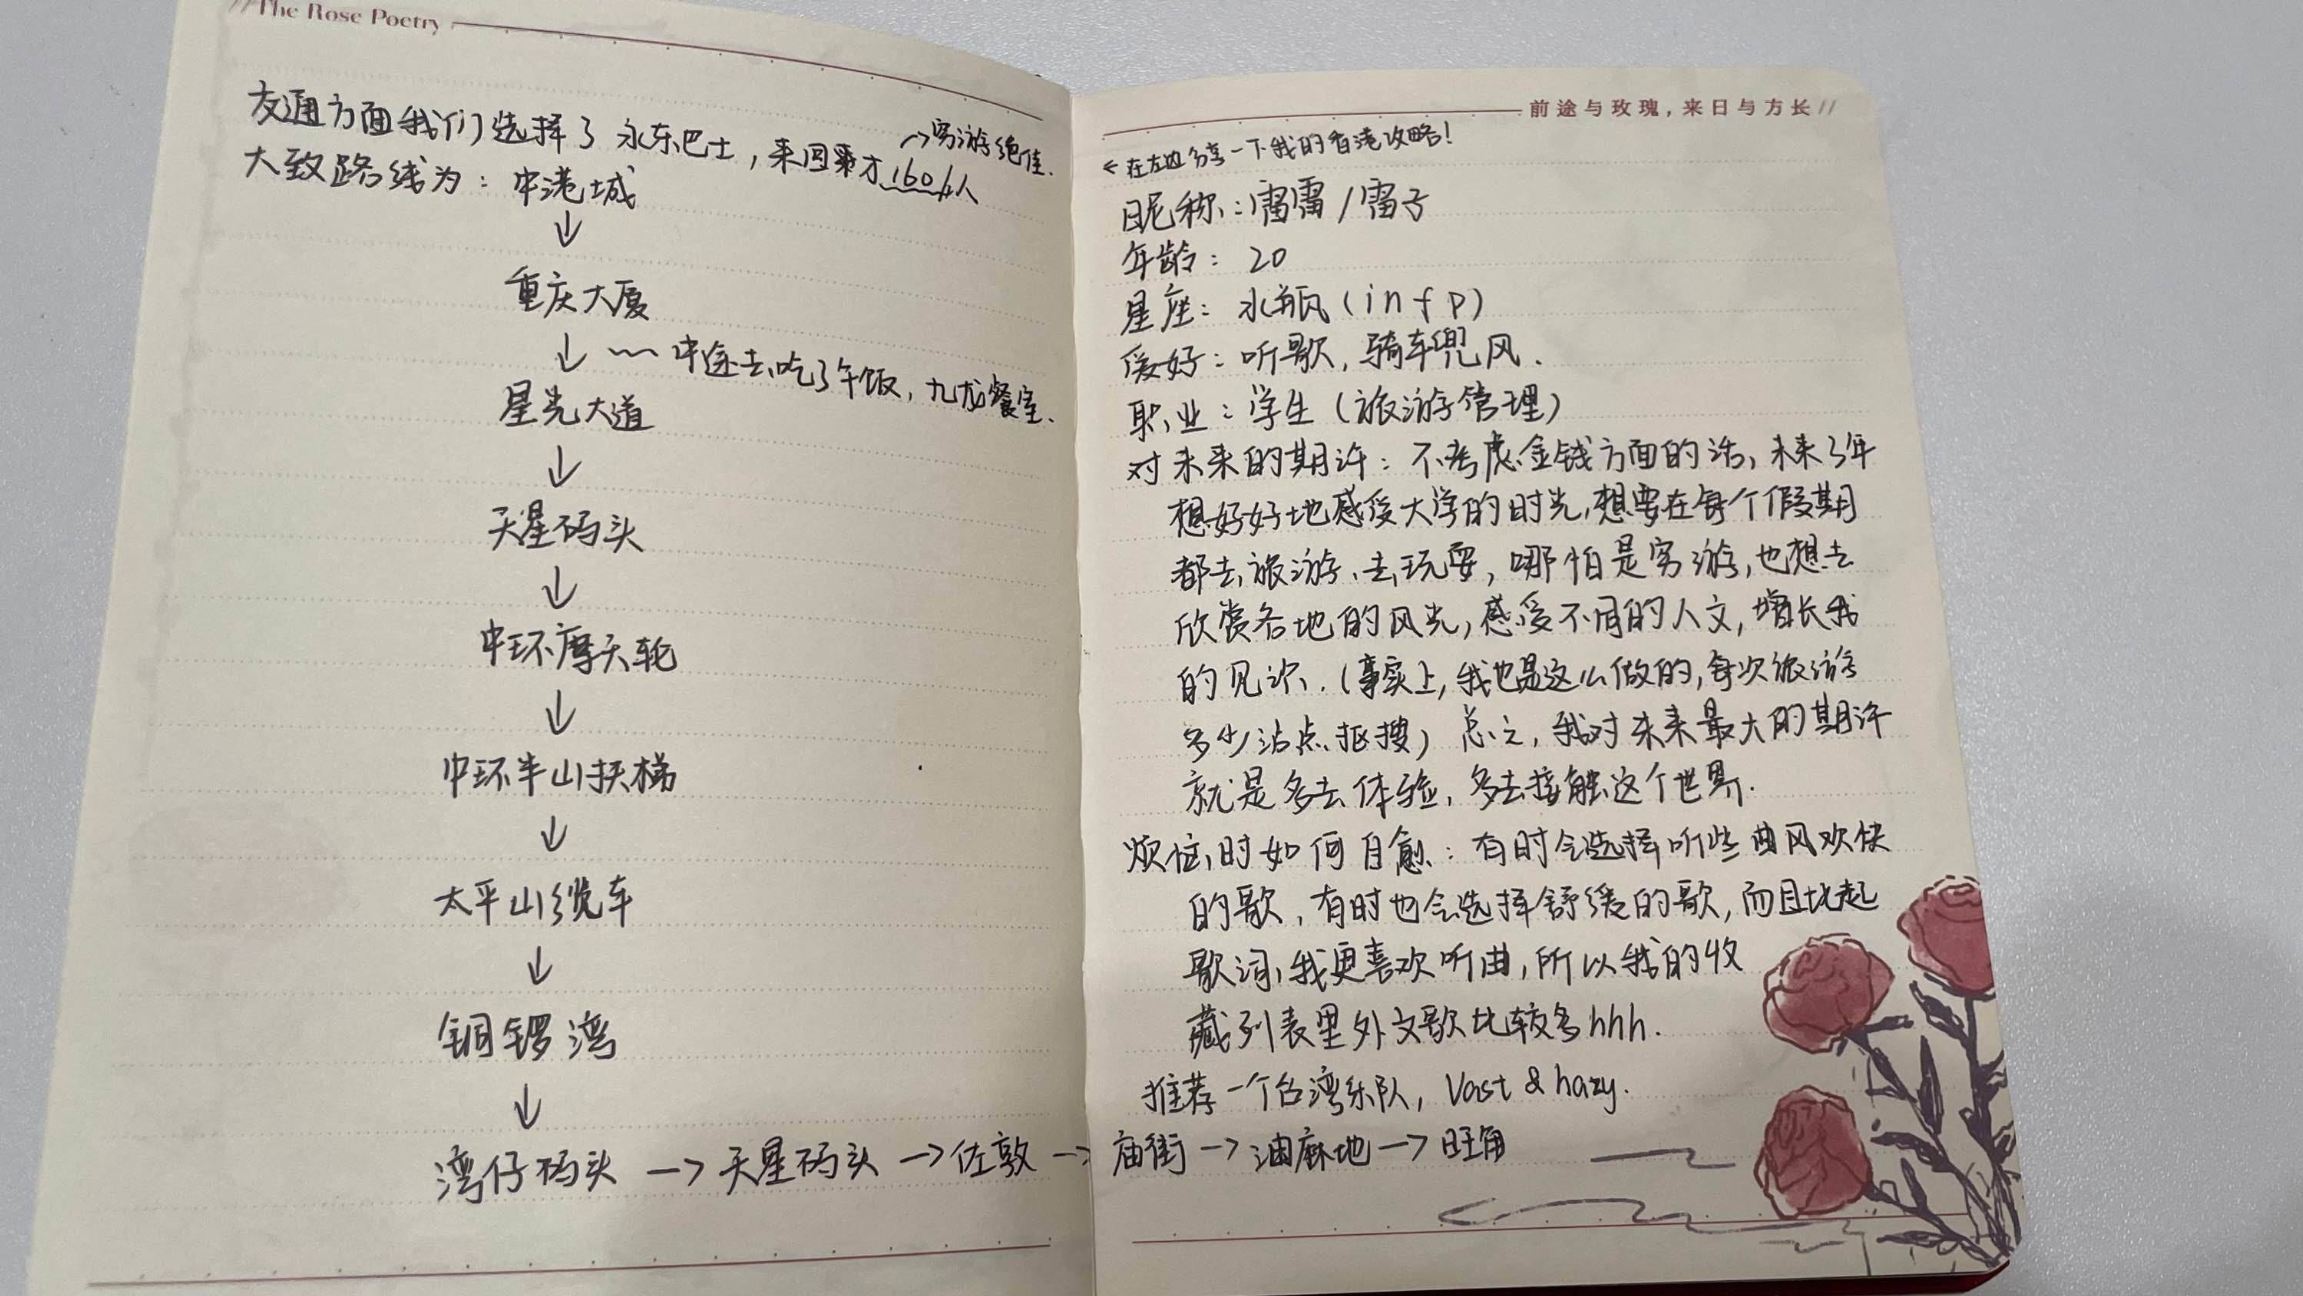 //The Rose Poetry
交通方面我们选择了永东巴士，来回票才160/人
→穷游绝佳.
大致路线为：中港城
↓
重庆大厦
↓ ~~ 中途去吃了午饭，九龙餐室.
星光大道
↓
天星码头
↓
中环摩天轮
↓
中环半山扶梯
↓
太平山缆车
↓
铜锣湾
↓
湾仔码头 → 天星码头 → 佐敦 → 庙街 → 油麻地 → 旺角
前途与玫瑰，来日与方长//
← 在左边分享一下我的香港攻略！
昵称：雷雷/雷子
年龄：20
星座：水瓶（infp）
爱好：听歌，骑车兜风.
职业：学生（旅游管理）
对未来的期许：不考虑金钱方面的话，未来3年
想好好地感受大学的时光，想要在每个假期
都去旅游、去玩耍，哪怕是穷游，也想去
欣赏各地的风光，感受不同的人文，增长我
的见识.（事实上，我也是这么做的，每次旅游
多少沾点抠搜）总之，我对未来最大的期许
就是多去体验，多去接触这个世界.
烦恼时如何自愈：有时会选择听些曲风欢快
的歌，有时也会选择舒缓的歌，而且比起
歌词，我更喜欢听曲，所以我的收
藏列表里外文歌比较多hhh.
推荐一个台湾乐队，Vast & hazy.